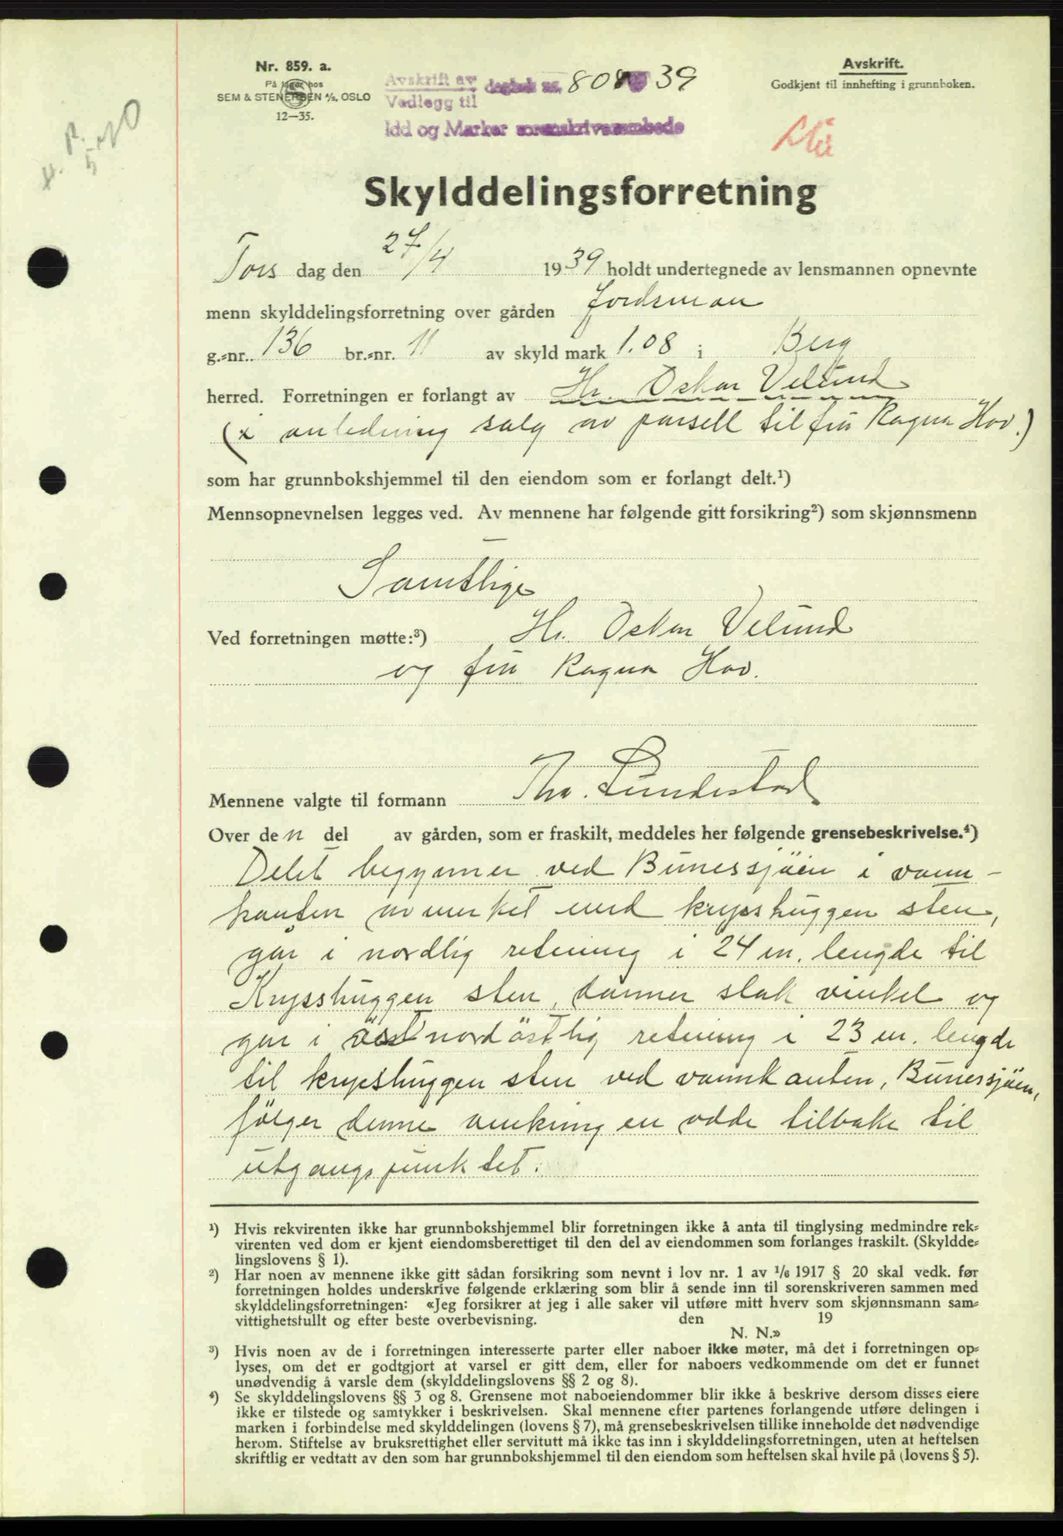 Nr. 859. a.
På lager hos
SEM & STENERSEN A/S, OSLO
12—35.
Avskrift av dagbok nr. 808 39
Vedlegg til
Idd og Marker sorenskriverembede
Avskrift.
Godkjent til innhefting i grunnboken.
Skylddelingsforretning
Tors dag den 27/4 1939 holdt undertegnede av lensmannen opnevnte
menn skylddelingsforretning over gården Jordsman
g.-nr. 136 br.-nr. 11 av skyld mark 1.08 i Berg
herred. Forretningen er forlangt av Hr. Oskar Velund
(i anledning salg av parsell til fru Ragna Hov.)
som har grunnbokshjemmel til den eiendom som er forlangt delt.¹)
Mennsopnevnelsen legges ved. Av mennene har følgende gitt forsikring²) som skjønnsmenn
Samtlige
Ved forretningen møtte:³) Hr. Oskar Velund
og fru Ragna Hov.
Mennene valgte til formann Thv. Lundestad
Over den del av gården, som er fraskilt, meddeles her følgende grensebeskrivelse.⁴)
Delet begynner ved Bunessjöen i vann-
kanten avmerket med krysshuggen sten,
går i nordlig retning i 24 m. lengde til
Krysshuggen sten, danner slak vinkel og
går i öst nordöstlig retning i 23 m. lengde
til krysshuggen sten ved vannkanten, Bunessjöen,
fölger denne omkring en odde tilbake til
utgangspunktet.
¹) Hvis rekvirenten ikke har grunnbokshjemmel blir forretningen ikke å anta til tinglysing medmindre rek-
virenten ved dom er kjent eiendomsberettiget til den del av eiendommen som forlanges fraskilt. (Skyldde-
lingslovens § 1).
²) Har noen av mennene ikke gitt sådan forsikring som nevnt i lov nr. 1 av 1/6 1917 § 20 skal vedk. før
forretningen holdes underskrive følgende erklæring som blir å sende inn til sorenskriveren sammen med
skylddelingsforretningen: «Jeg forsikrer at jeg i alle saker vil utføre mitt hverv som skjønnsmann sam-
vittighetsfullt og efter beste overbevisning. den 19
N. N.»
³) Hvis noen av de i forretningen interesserte parter eller naboer ikke møter, må det i forretningen op-
lyses, om det er godtgjort at varsel er gitt dem, eller for naboers vedkommende om det er funnet
unødvendig å varsle dem (skylddelingslovens §§ 2 og 8).
⁴) Se skylddelingslovens §§ 3 og 8. Grensene mot naboeiendommer blir ikke å beskrive dersom disses eiere
ikke er tilstede og samtykker i beskrivelsen. Skal mennene efter partenes forlangende utføre delingen i
marken i forbindelse med skylddelingen (lovens § 7), må grensebeskrivelsen tillike inneholde det nødvendige
herom. Stiftelse av bruksrettighet eller servitutt må ikke tas inn i skylddelingsforretningen, uten at heftelsen
skriftlig er vedtatt av den som har grunnbokshjemmel til den eiendom som heftelsen skal hvile på (lovens § 5).